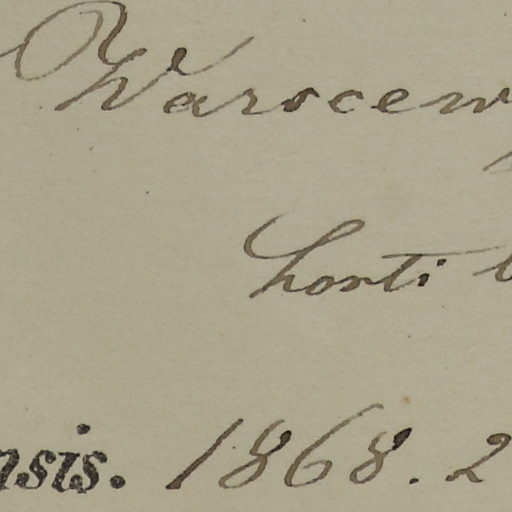 Warocew
horti
nsis. 1868. 2